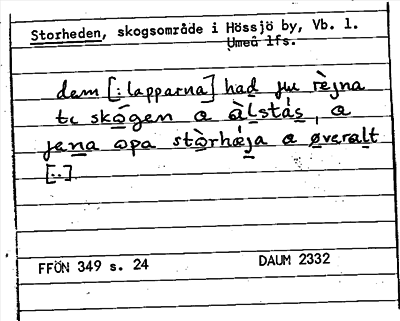 Storheden, skogsområde i Hössjö by, Vb. l.
Umeå lfs.
dem [: lapparna] had ju rèjna
te skogen o àlstás, o
jena opa stòrhéja o øveralt
[..]
FFÖN 349 s. 24 DAUM 2332